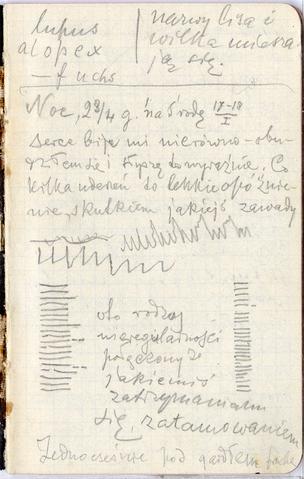 lupus
alopex
— fuchs
nazwy lisa i
wilka miesza
ją się.
Noc, 2¾ g. na środę 17-18/I
serce bije mi nierówno - obu-
dziłem się i słyszę to wyraźnie. Co
kilka uderzeń to lekkie opóźnie-
nie, skutkiem jakiejś zawady
oto rodzaj
nieregularności
połączony ze
jakiemiś
zatrzymaniem
się, zatamowaniem
Jednocześnie pod gardłem